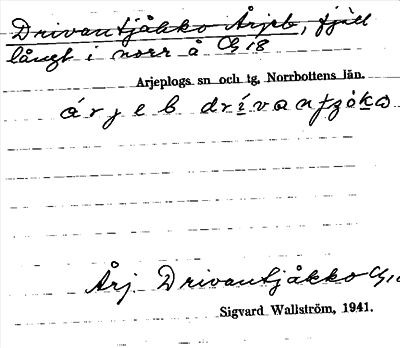 Drivantjåkko Årjeb, fjäll
långt i norr å G 18
Arjeplogs sn och tg, Norrbottens län.
Årj. Drivantjåkko
Sigvard Wallström, 1941.